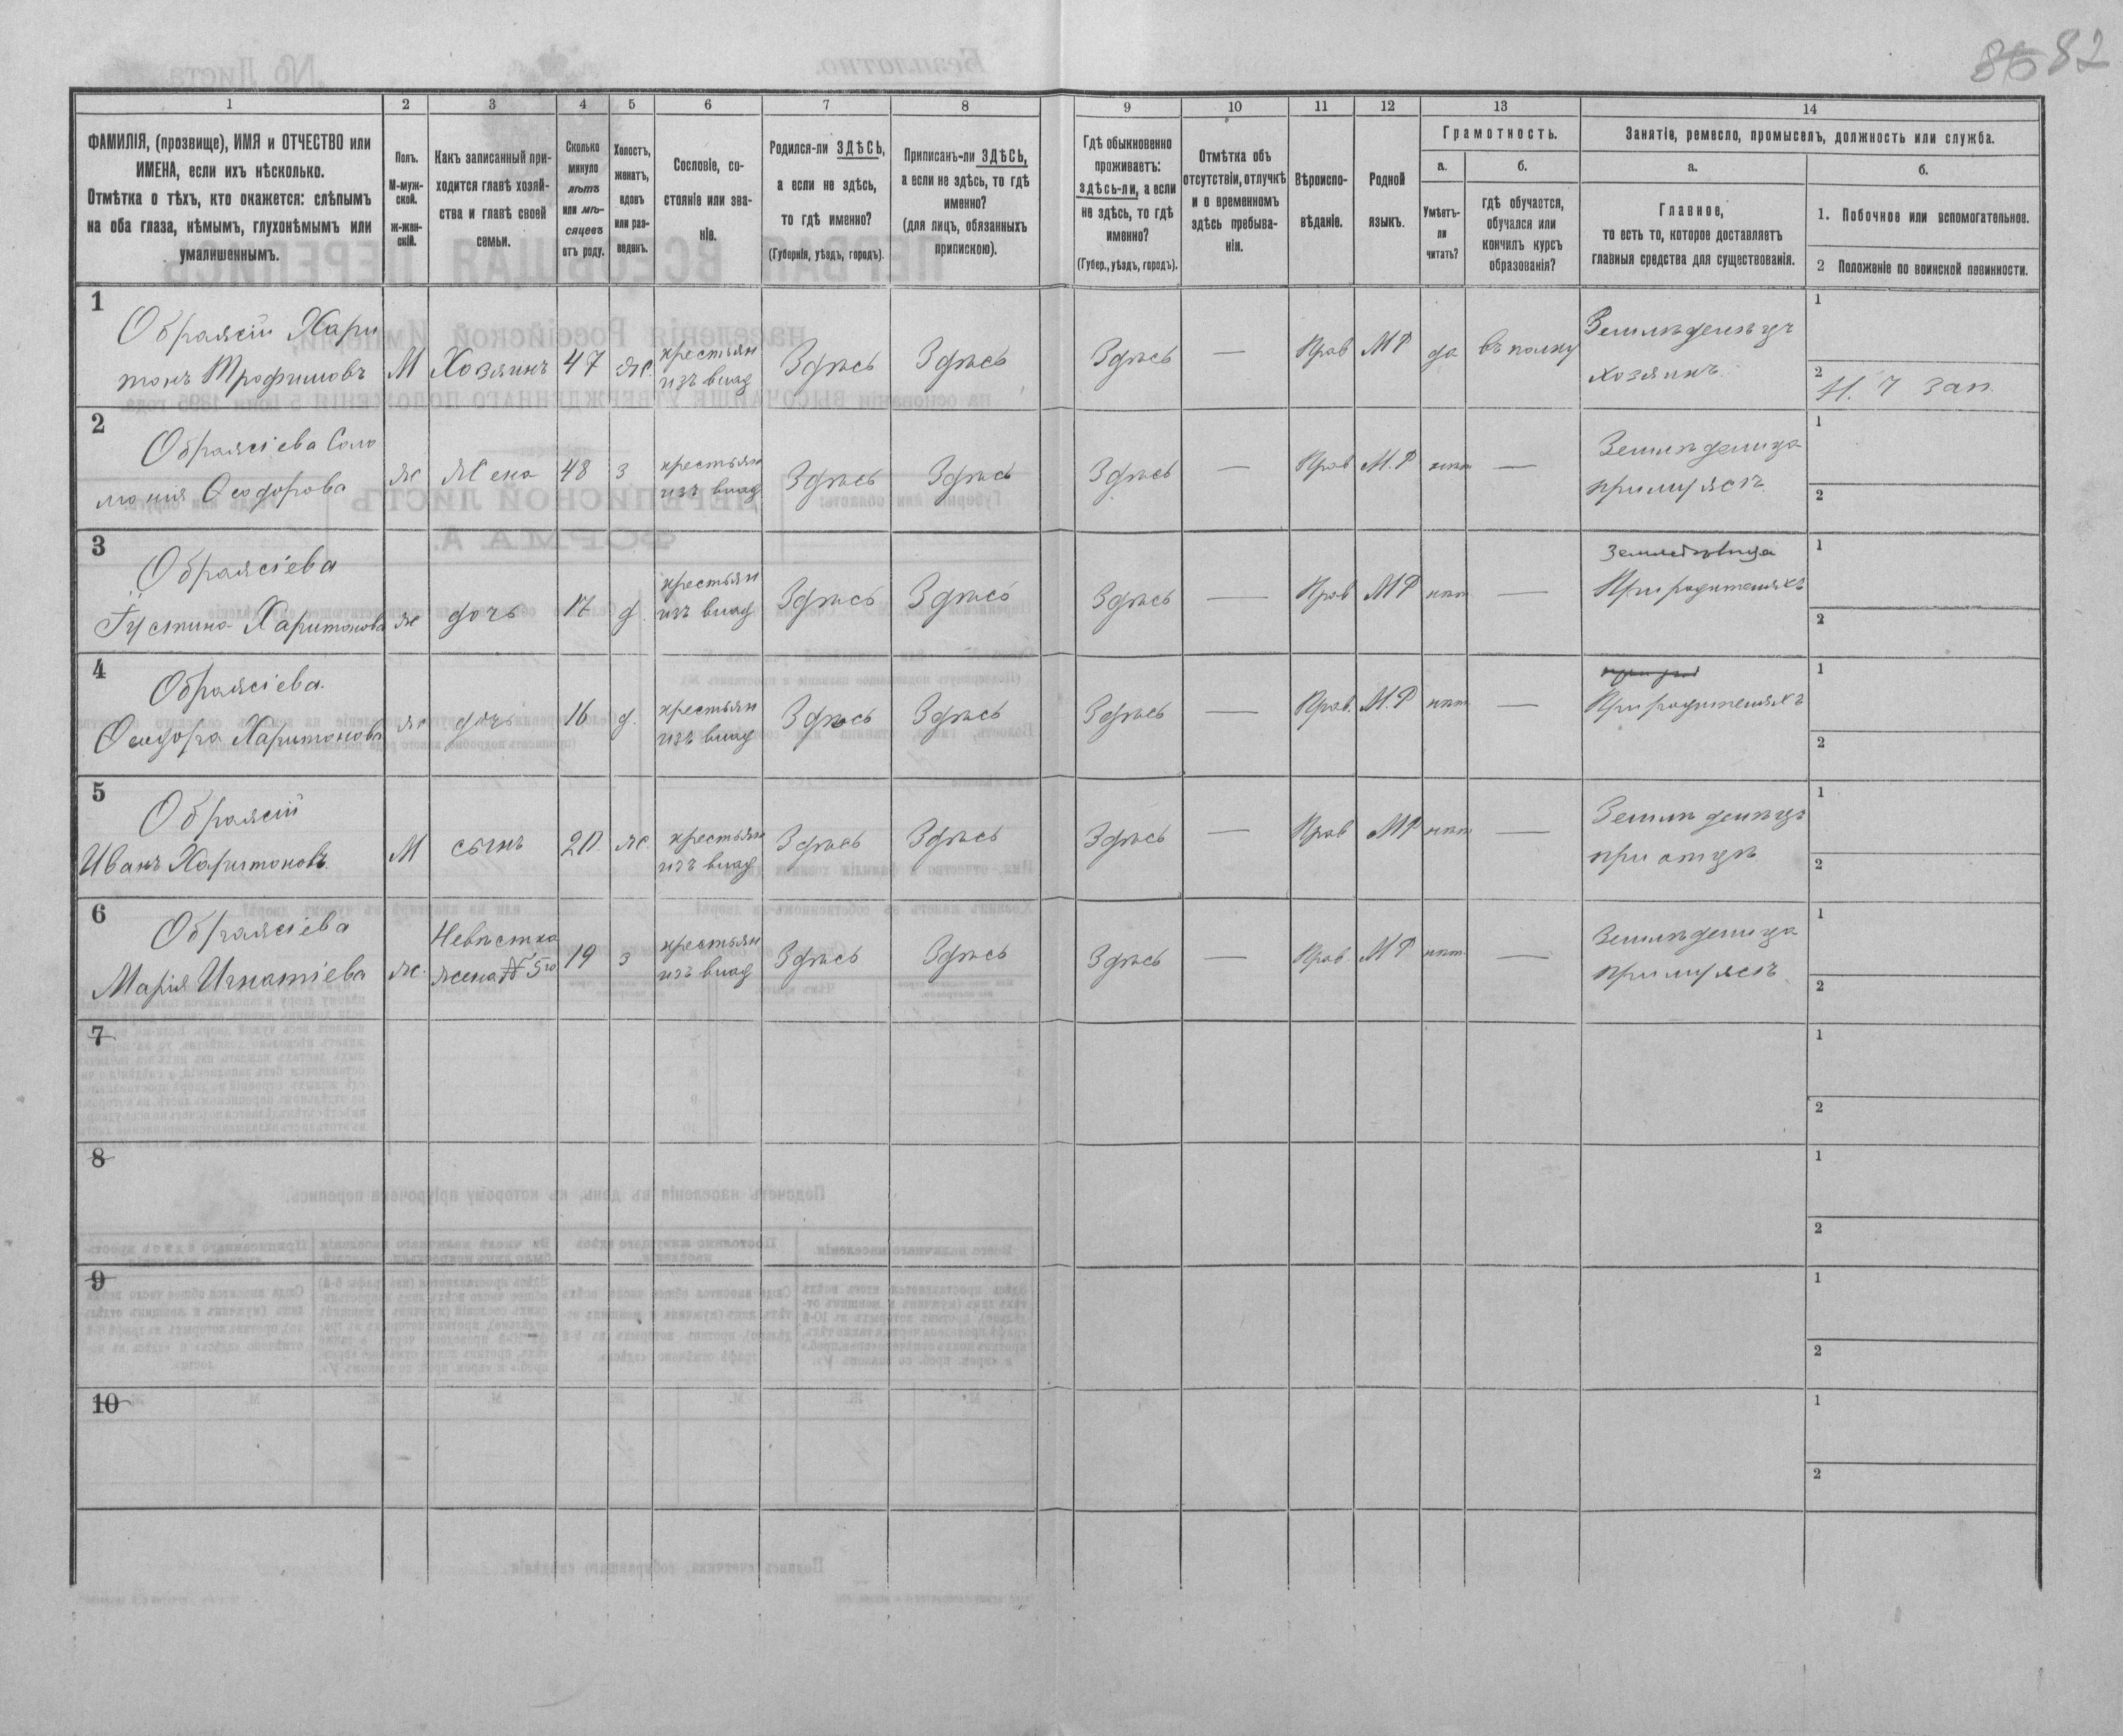 86 82
1 2 3 4 5 6 7 8 9 10 11 12 13 14
ФАМИЛІЯ, (прозвище), ИМЯ и ОТЧЕСТВО или
ИМЕНА, если ихъ нѣсколько.
Отмѣтка о тѣхъ, кто окажется: слѣпымъ
на оба глаза, нѣмымъ, глухонѣмымъ или
умалишеннымъ.
Полъ.
М-муж-
ской.
ж-жен-
скій.
Какъ записанный при-
ходится главѣ хозяй-
ства и главѣ своей
семьи.
Сколько
минуло
лѣтъ
или мѣ-
сяцевъ
отъ роду.
Холостъ,
женатъ,
вдовъ
или раз-
веденъ.
Сословіе, со-
стояніе или зва-
ніе.
Родился-ли ЗДѢСЬ,
а если не здѣсь,
то гдѣ именно?
(Губернія, уѣздъ, городъ).
Приписанъ-ли ЗДѢСЬ,
а если не здѣсь, то гдѣ
именно?
(для лицъ, обязанныхъ
припискою).
Гдѣ обыкновенно
проживаетъ:
здѣсь-ли, а если
не здѣсь, то гдѣ
именно?
(Губер., уѣздъ, городъ).
Отмѣтка объ
отсутствіи, отлучкѣ
и о временномъ
здѣсь пребыва-
ніи.
Вѣроиспо-
вѣданіе.
Родной
языкъ.
Грамотность.
а.
Умѣетъ-
ли
читать?
б.
гдѣ обучается,
обучался или
кончилъ курсъ
образованія?
Занятіе, ремесло, промыселъ, должность или служба.
а.
Главное,
то есть то, которое доставляетъ
главныя средства для существованія.
б.
1. Побочное или вспомогательное.
2 Положеніе по воинской повинности.
1
Ображій Хари
тонъ Трофимовъ М Хозяинъ 47 ж. крестьян
изъ влад Здѣсь Здѣсь Здѣсь — Прав МР да въ полку Земледѣлецъ
хозяинъ
1
2 Н. Ч зап.
2
Ображіева Соло
монія Ѳеодорова ж Жена 48 з крестьян
изъ влад Здѣсь Здѣсь Здѣсь — Прав М.Р нѣт — Земледѣлица
при мужѣ
1
2
3
Ображіева
Густина Харитонова ж дочь 17 д. крестьян
изъ влад Здѣсь Здѣсь Здѣсь — Прав МР нѣт —
При родителяхъ
1
2
4
Ображіева.
Ѳеодора Харитонова ж дочь 16 д. крестьян
изъ влад Здѣсь Здѣсь Здѣсь — Прав. М.Р нѣт —
При родителяхъ
1
2
5
Ображій
Иванъ Харитоновъ М сынъ 20 ж. крестьян
изъ влад Здѣсь Здѣсь Здѣсь — Прав МР нѣт — Земледѣлецъ
при отцѣ
1
2
6
Ображіева
Марія Игнатіева ж. Невѣстка
жена № 5го 19 з крестьян
изъ влад Здѣсь Здѣсь Здѣсь — Прав МР нѣт — Земледѣлица
при мужѣ
1
2
7
1
2
8
1
2
9
1
2
10
1
2